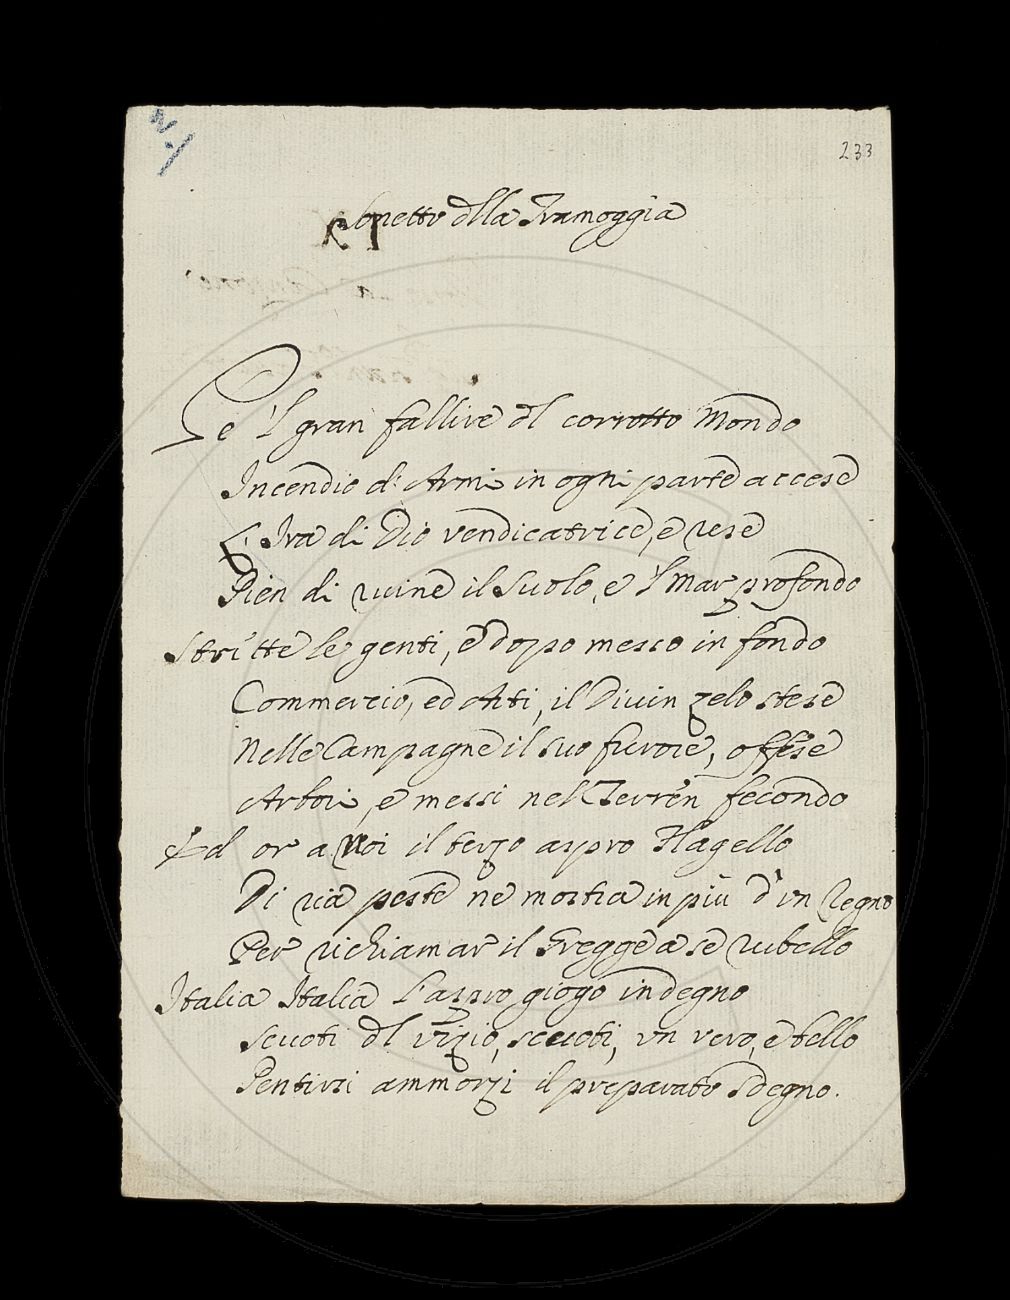 N. 1
233
Sonetto della Tramoggia
Se 'l gran fallire del corrotto Mondo
Incendio di Armi in ogni parte accese
L'Ira di Dio vendicatrice, e rese
Pien di ruine il Suolo, e 'l Mar profondo
Stritte le genti, e dopo messo in fondo
Commercio, ed Arti, il Divin zelo stese
Nelle Campagne il suo furore, offese
Arbori, e messi nel Terren fecondo
Ed or a Noi il terzo aspro Flagello
Di ria peste ne mostra in più d'un Regno
Per richiamar il Gregge a se rubello
Italia Italia l'aspro giogo indegno
Scuoti del vizio, scuoti, un vero, e bello
Pentirsi ammorzi il preparato Sdegno.